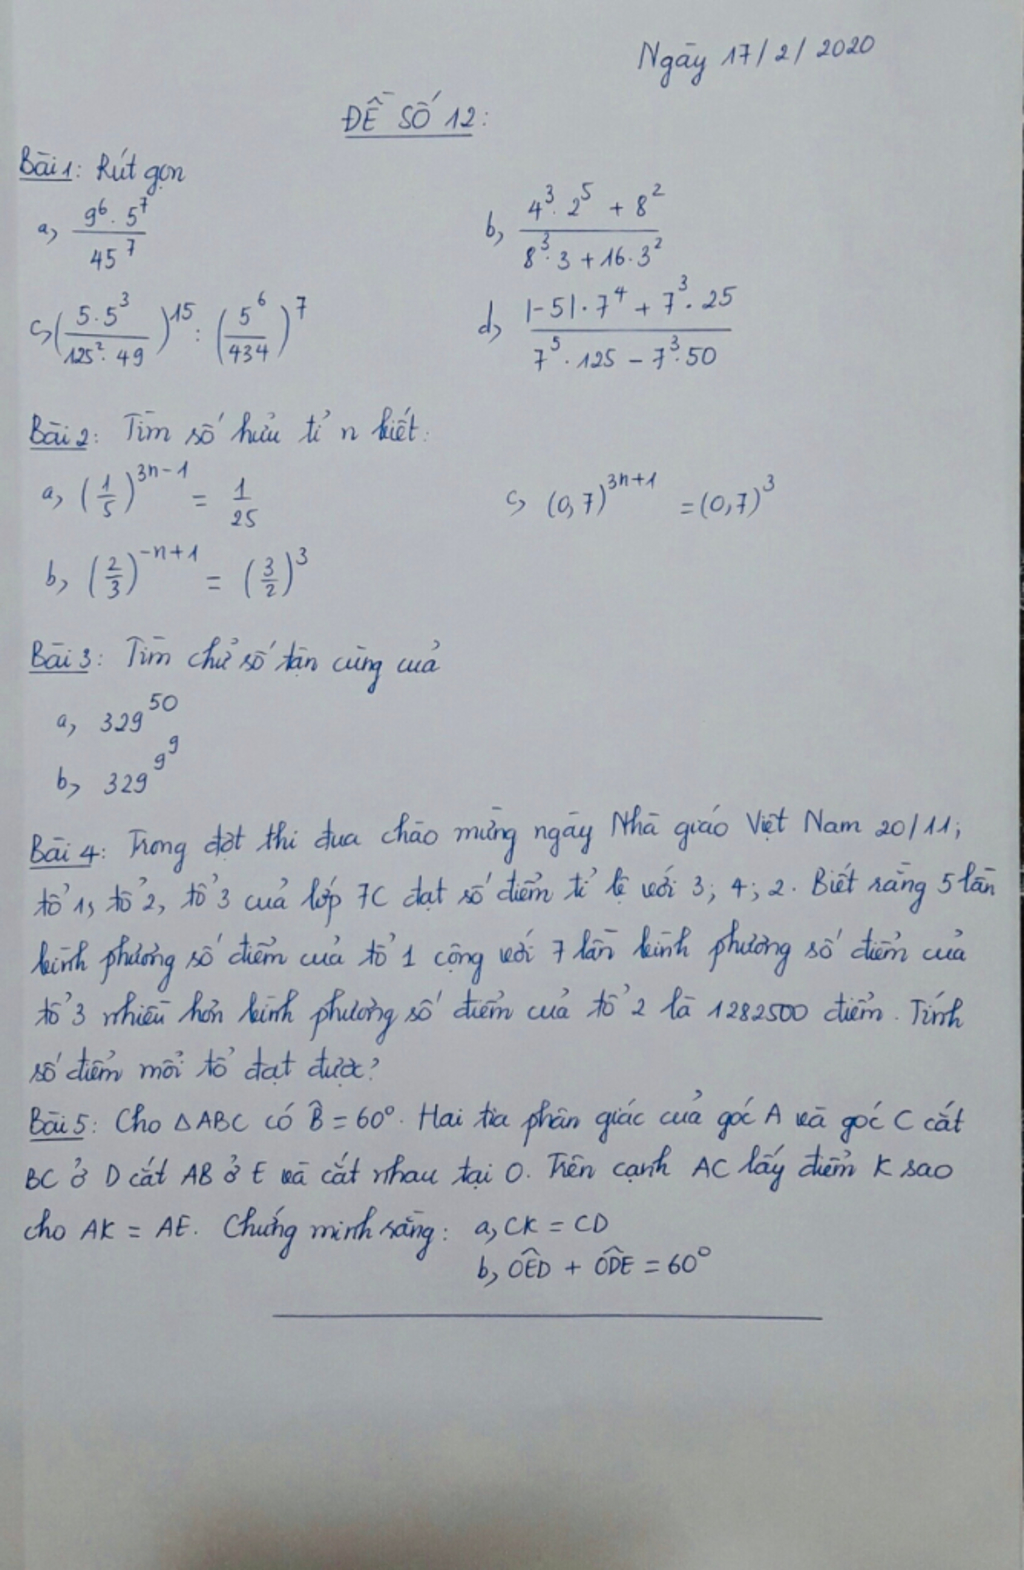 Ngày 17/2/2020
ĐỀ SỐ 12:
Bài 1: Rút gọn
a, \frac{9^6 \cdot 5^7}{45^7}  b, \frac{4^3 \cdot 2^5 + 8^2}{8^3 \cdot 3 + 16 \cdot 3^2}
c, \left(\frac{5 \cdot 5^3}{125^2 \cdot 49}\right)^{15} : \left(\frac{5^6}{434}\right)^7  d, \frac{|-5| \cdot 7^4 + 7^3 \cdot 25}{7^5 \cdot 125 - 7^3 \cdot 50}
Bài 2: Tìm số hữu tỉ n biết:
a, \left(\frac{1}{5}\right)^{3n-1} = \frac{1}{25}  c, (0,7)^{3n+1} = (0,7)^3
b, \left(\frac{2}{3}\right)^{-n+1} = \left(\frac{3}{2}\right)^3
Bài 3: Tìm chữ số tận cùng của
a, 329^{50}
b, 329^{9^9}
Bài 4: Trong đợt thi đua chào mừng ngày Nhà giáo Việt Nam 20/11;
tổ 1, tổ 2, tổ 3 của lớp 7C đạt số điểm tỉ lệ với 3; 4; 2. Biết rằng 5 lần
bình phương số điểm của tổ 1 cộng với 7 lần bình phương số điểm của
tổ 3 nhiều hơn bình phương số điểm của tổ 2 là 1282500 điểm. Tính
số điểm mỗi tổ đạt được?
Bài 5: Cho △ABC có B̂ = 60°. Hai tia phân giác của góc A và góc C cắt
BC ở D cắt AB ở E và cắt nhau tại O. Trên cạnh AC lấy điểm K sao
cho AK = AE. Chứng minh rằng: a, CK = CD
b, \widehat{OED} + \widehat{ODE} = 60°